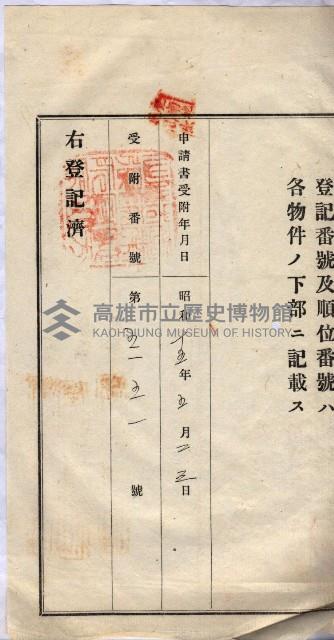 登記番號及順位番號ハ
各物件ノ下部ニ記載ス
申請書受附年月日 昭和十五年五月二三日
受附番號 第五一五一號
右登記濟
高雄市立歷史博物館
KAOHSIUNG MUSEUM OF HISTORY